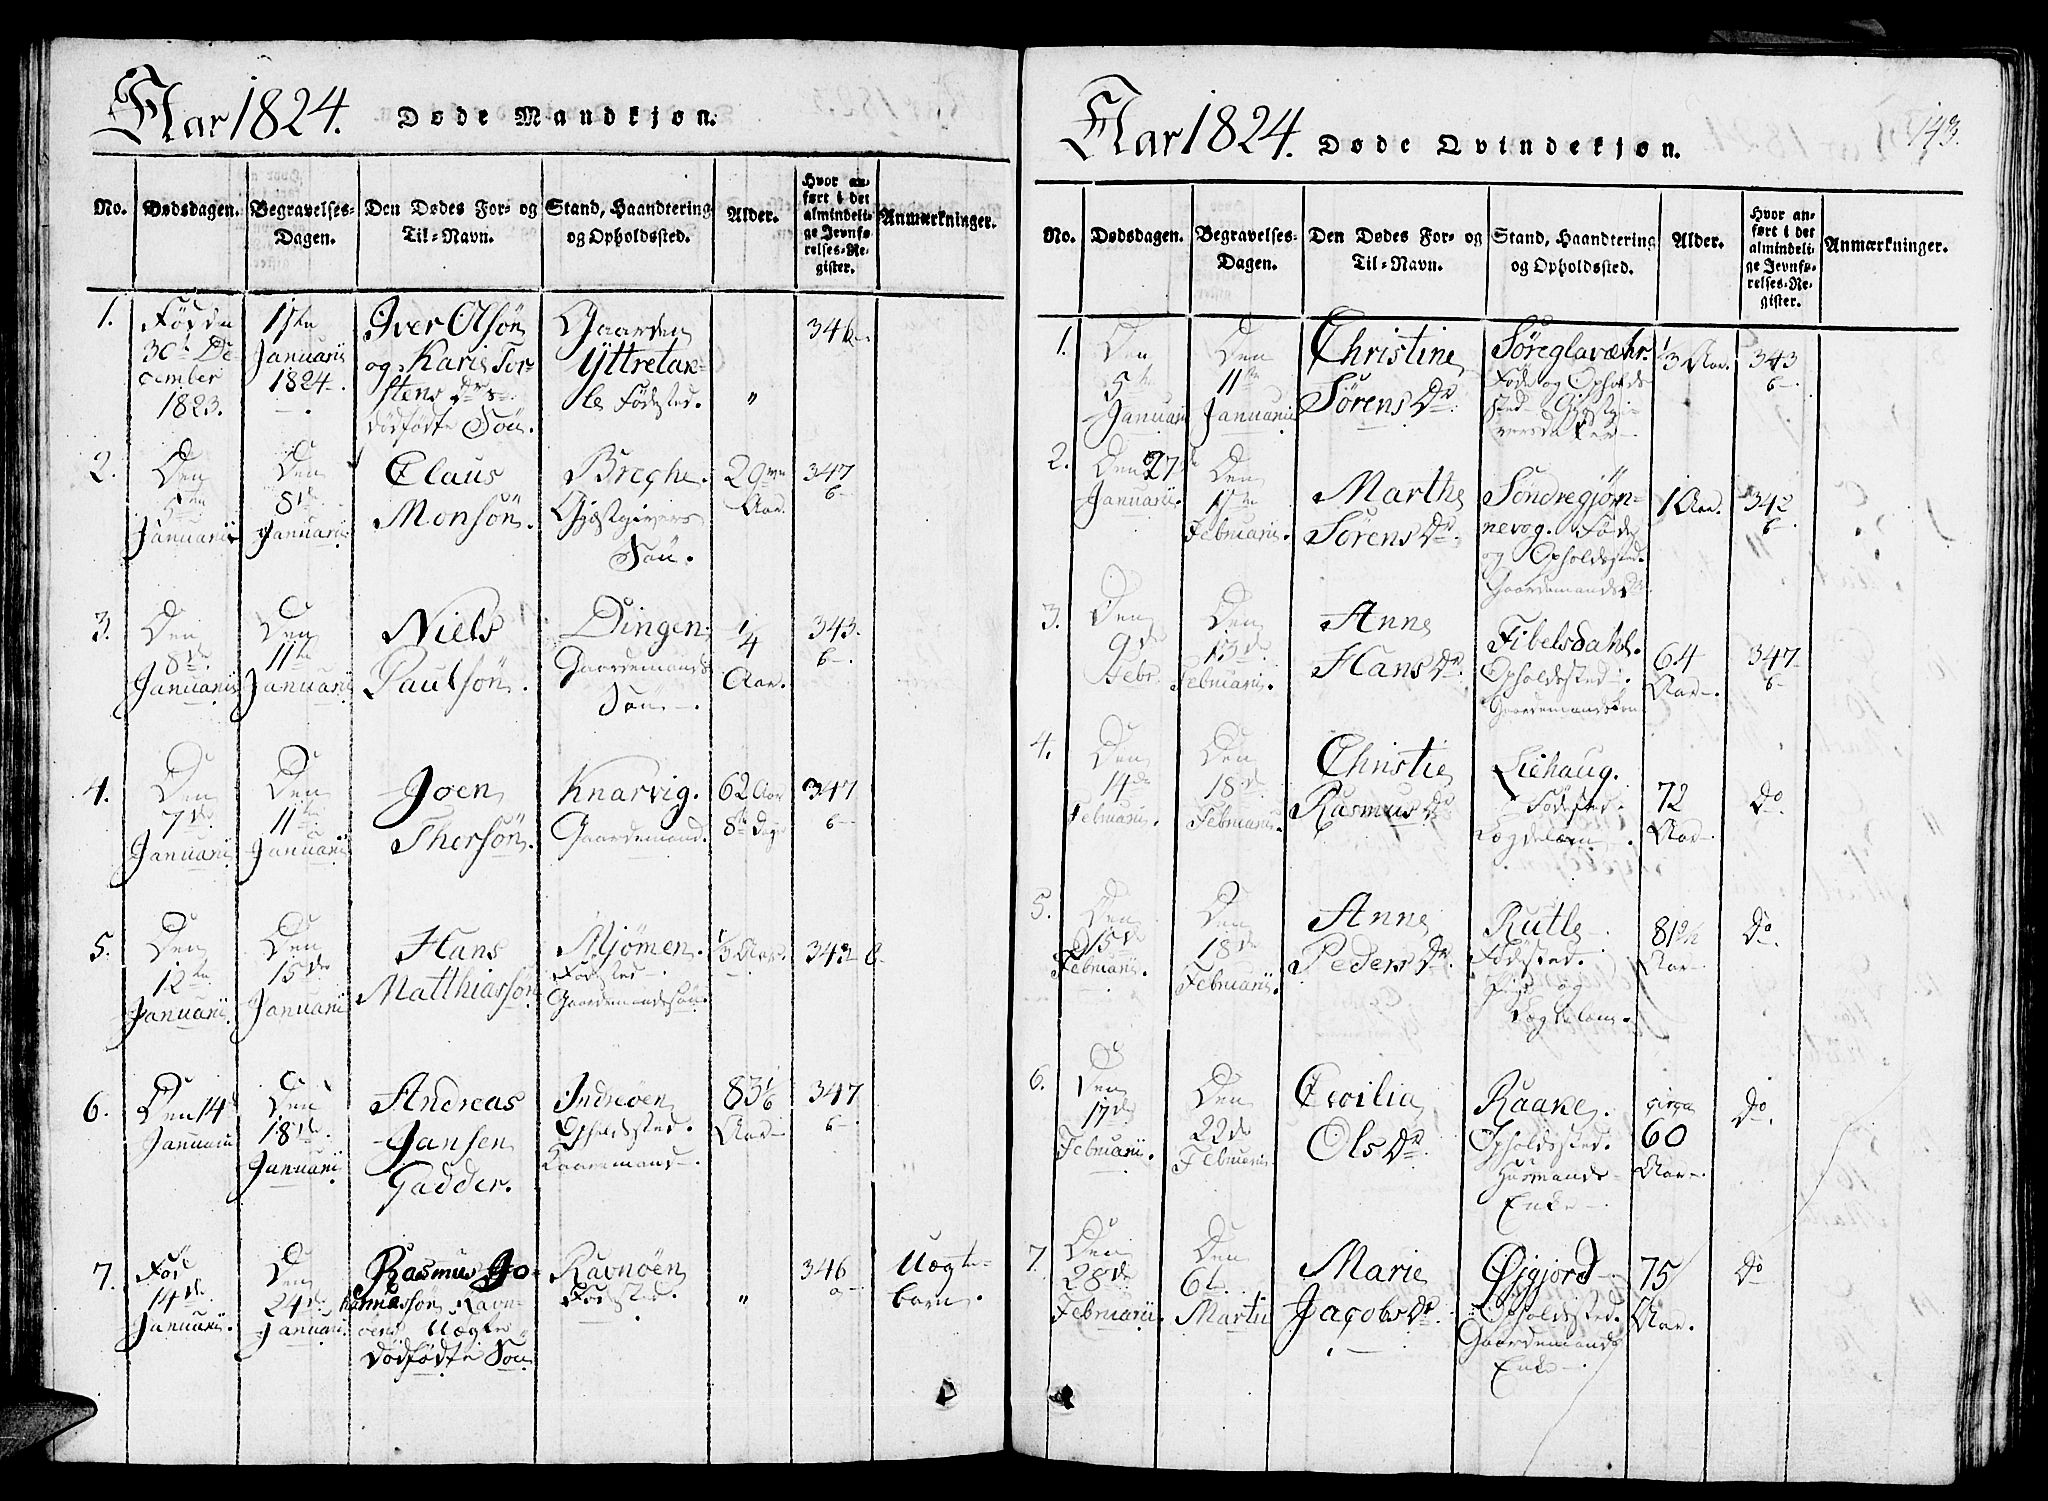 Aar 1824. Døde Mandkjøn.
No.
Dødsdagen.
Begravelses-
Dagen.
Den Dødes For- og
Til-Navn.
Stand, Haandtering
og Opholdssted.
Alder.
Hvor an-
ført i det
almindeli-
ge Jevnfø-
relses-Re-
gister.
Anmærkninger.
1.
30te De
cember
1823.
1ste
Januarii
1824.
Iver Olsön
og Karis Tor-
stens Dr.
dödfödte Sön.
Gaarden
Yttretak-
le Födested.
"
346
2.
Den
5te
Januarii
Den
8de
Januarii
Claus
Monsön.
Breche.
Gjestgivers
Sön.
29
Aar.
347
6
3.
Den
8de
Januarii
Den
11te
Januarii
Niels
Paulsön.
Dingen.
Gaardemands
Sön.
1/4
Aar.
343.
6
4.
Den
7de
Januarii
Den
11te
Januarii
Joen
Thersön.
Knarvig.
Gaardemand.
62 Aar
8te Dage
347
6
5.
Den
12te
Januarii
Den
15de
Januarii
Hans
Matthiassön
Mjömen.
Födested.
Gaardemandssön.
1/3 Aar.
343
6.
Den 14de
Januarii
Den
18de
Januarii
Andreas
Jansen
Gadder.
Indreöen
Opholdssted.
83 1/6
Aar
347
6
7.
14de
Januarii.
Den
24de
Januarii.
Rasmus Jo-
hannessön Ravn-
oens Uægte
dödfödte Sön
Ravnöen
Födested.
"
346
a
Uægte-
barn.
Aar 1824. Døde Qvindekjøn.
143.
No.
Dødsdagen.
Begravelses-
Dagen.
Den Dødes For- og
Til-Navn.
Stand, Haandtering
og Opholdssted.
Alder.
Hvor an-
ført i det
almindeli-
ge Jevnfø-
relses-Re-
gister.
Anmærkninger.
1.
Den
5te
Januarii
Den
11te
Januarii
Christine
Sörens Dr.
Söreglavæhr.
Føde og Opholds
sted
1/3 Aar.
343
6
2.
Den 27de
Januarii.
Den
1ste
Februarii.
Marthe
Sörens Dr.
Söndregjöm-
nevog. Føde
og Opholdssted.
Gaardemands Dr.
1 Aar.
343
6
3.
Den
9de
Febr.
Den
13de
Februarii.
Anne
Hans Dr.
Fibelsdahl.
Opholdssted.
Gaardemandskone
64
Aar
347
6
4.
Den
14de
Februarii.
Den
18de
Februarii.
Christie
Rasmus Dr.
Liehaug.
Födested.
Lægdelem
72
Aar
Do
5.
Den
15de
Februarii.
Den
18de
Februarii.
Anne
Peders Dr.
Rutle
Födested.
Pige og
Lægdelem.
81
Aar
Do.
6.
Den
17de
Februarii.
Den
22de
Februarii.
Cecilia
Ols Dr.
Raake.
Opholdssted.
Husmands
Enke
circa
60
Aar
Do.
7.
Den
28de
Februarii.
Den
6te
Martii
Marie
Jacobs Dr.
Øjgjord
Opholdssted.
Gaardemands
Enke
75
Aar.
Do